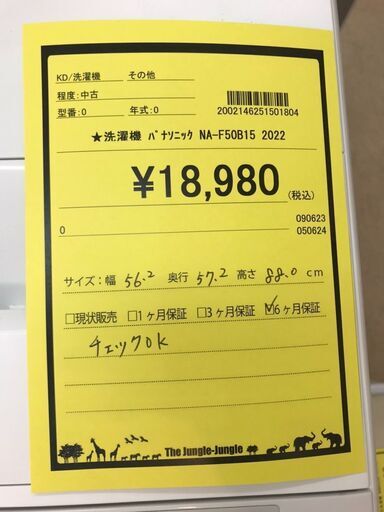 KD/洗濯機 その他
程度:中古
型番:0 年式:0
2002146251501804
★洗濯機 ﾊﾟﾅｿﾆｯｸ NA-F50B15 2022
¥18,980(税込)
090623
0 050624
サイズ:幅 56.2 奥行 57.2 高さ 88.0 cm
□現状販売 □1ヶ月保証 □3ヶ月保証 ☑6ヶ月保証
チェックOK
The Jungle-Jungle